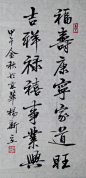 福寿康宁家道旺
吉祥禄禧事业兴
甲午金秋於京华杨新立